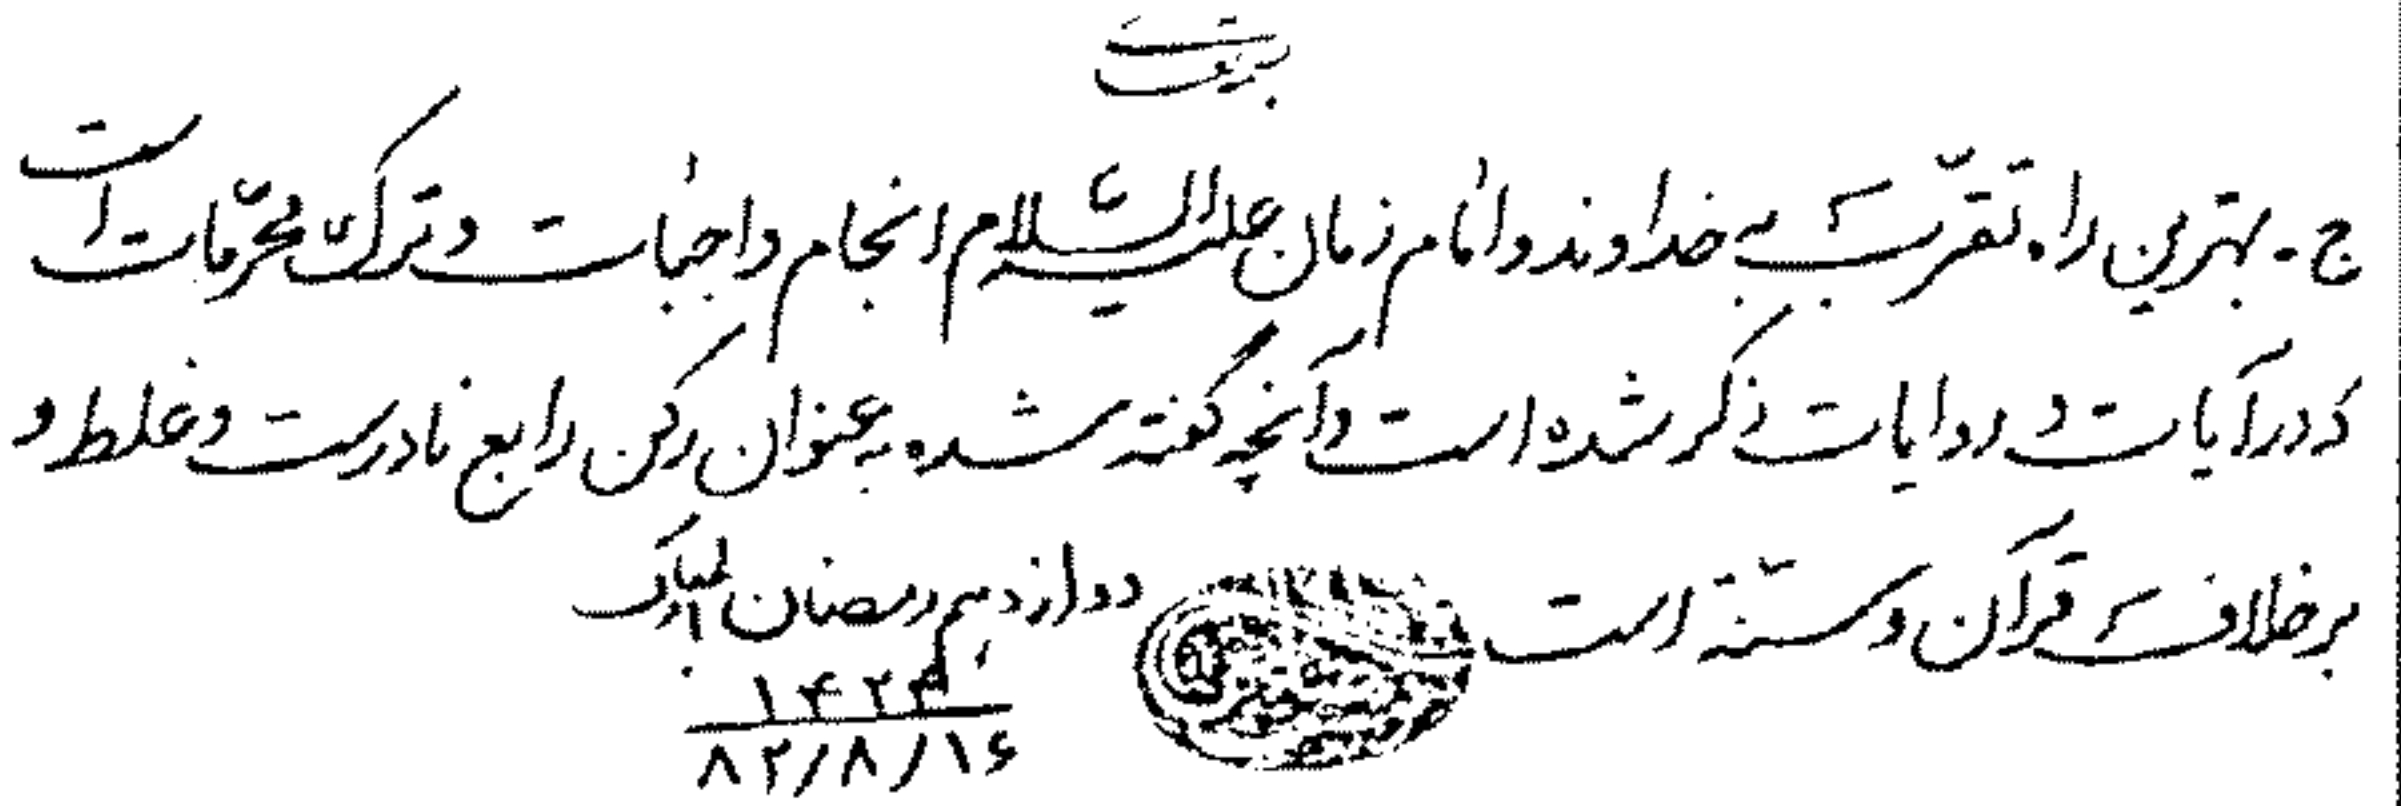 بسمه تعالی
ج - بهترین راه تقرّب به خداوند و امام زمان علیه السّلام انجام واجبات و ترک محرّمات است
که در آیات و روایات ذکر شده است و آنچه گفته شده به عنوان رکن رابع نادرست و غلط و
بر خلاف قرآن و سنّت است
دوازدهم رمضان المبارک
۱۴۲۴
۸۲/۸/۱۶